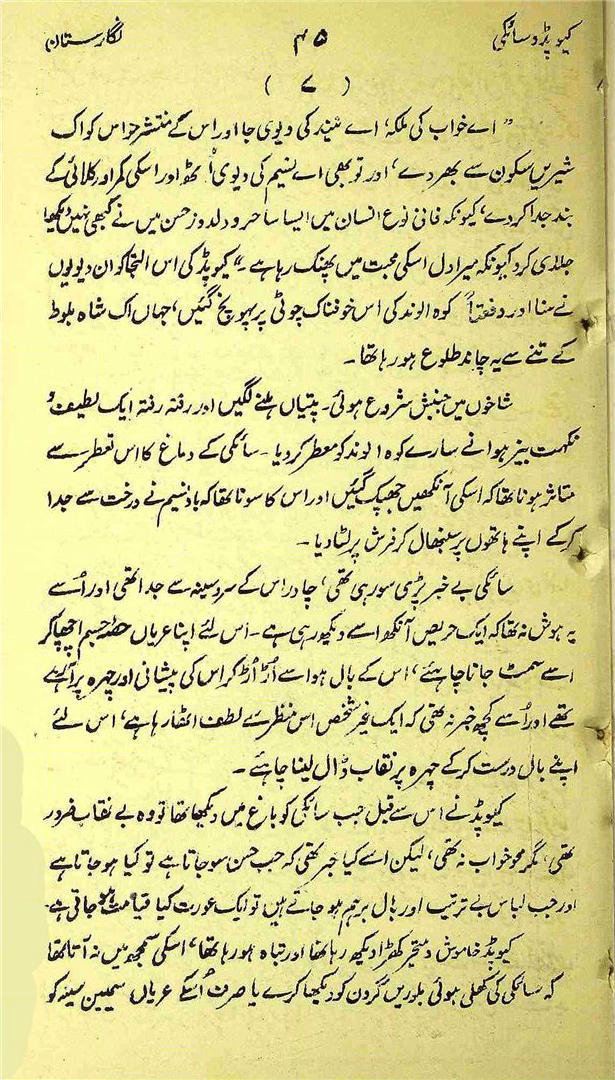 کیوپڈ و سائکی ۴۵ نگارستان
( ۷ )
”اے خواب کی ملکہ، اے نیند کی دیوی جا اور اس کے منتشر حواس کو اک
شیریں سکون سے بھر دے، اور تو بھی اے نسیم کی دیوی اُٹھ اور اسکی کمر اور کلائی کے
بند جدا کر دے، کیونکہ فانی نوع انسان میں ایسا ساحر و دلدوز حسن میں نے کبھی نہیں دیکھا
جلدی کرو کیونکہ میرا دل اسکی محبت میں پھنک رہا ہے۔“ کیوپڈ کی اس التجا کو ان دیویوں
نے سنا اور دفعتاً کوہ الوند کی اس خوفناک چوٹی پر پہونچ گئیں، جہاں اک شاہ بلوط
کے تنے سے یہ چاند طلوع ہو رہا تھا۔
شاخوں میں جنبش شروع ہوئی۔ پتیاں ہلنے لگیں اور رفتہ رفتہ ایک لطیف و
نکہت بیز ہوا نے سارے کوہ الوند کو معطر کر دیا۔ سائکی کے دماغ کا اس تعطر سے
متاثر ہونا تھا کہ اسکی آنکھیں جھپک گئیں اور اس کا سونا تھا کہ باد نسیم نے درخت سے جدا
کر کے اپنے ہاتھوں پر سنبھال کر فرش پر لٹا دیا۔
سائکی بے خبر پڑی سو رہی تھی، چادر اس کے سر و سینہ سے جدا تھی اور اُسے
یہ ہوش نہ تھا کہ ایک حریص آنکھ اسے دیکھ رہی ہے۔ اس لئے اپنا عریاں حصۂ جسم چھپا کر
اسے سمٹ جانا چاہئے، اس کے بال ہوا سے اُڑ اُڑ کر اس کی پیشانی اور چہرہ پر آ رہے
تھے اور اُسے کچھ خبر نہ تھی کہ ایک غیر شخص اس منظر سے لطف اٹھا رہا ہے، اس لئے
اپنے بال درست کر کے چہرہ پر نقاب ڈال لینا چاہئے۔
کیوپڈ نے اس سے قبل جب سائکی کو باغ میں دیکھا تھا تو وہ بے نقاب ضرور
تھی، مگر محو خواب نہ تھی، لیکن اسے کیا خبر تھی کہ جب حسن سو جاتا ہے تو کیا ہو جاتا ہے
اور جب لباس بے ترتیب اور بال برہم ہو جاتے ہیں تو ایک عورت کیا قیامت ہو جاتی ہے۔
کیوپڈ خاموش و متحیر کھڑا دیکھ رہا تھا اور تباہ ہو رہا تھا، اسکی سمجھ میں نہ آتا تھا
کہ سائکی کی کھلی ہوئی بلوریں گردن کو دیکھا کرے یا صرف اُسکے عریاں سیمیں سینہ کو